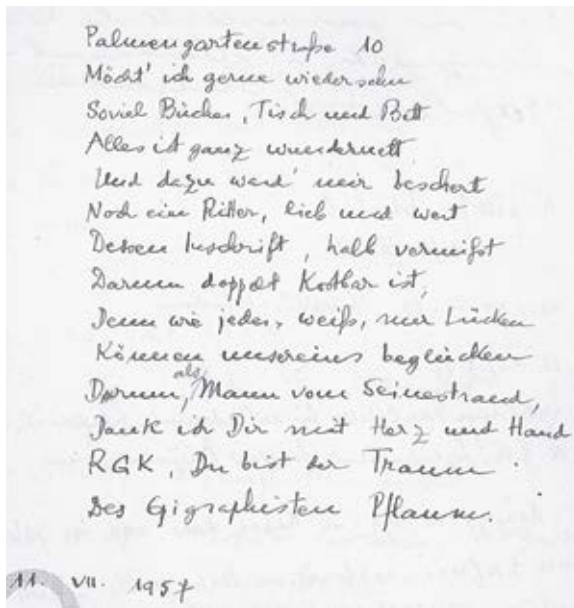 Palmengartenstraße 10
Möcht' ich gerne wiedersehn
Soviel Bücher, Tisch und Bett
Alles ist ganz wundernett
Und dazu ward' mir beschert
Noch ein Ritter, lieb und wert
Dessen Inschrift, halb vermißt
Darum doppelt kostbar ist,
Denn wie jeder weiß, nur Lücken
Können unsereins beglücken
Darum, als Mann vom Seinestrand,
Dank ich Dir mit Herz und Hand
RGK, Du bist der Traum
Des Epigraphisten Pflaum.
11. VII. 1957